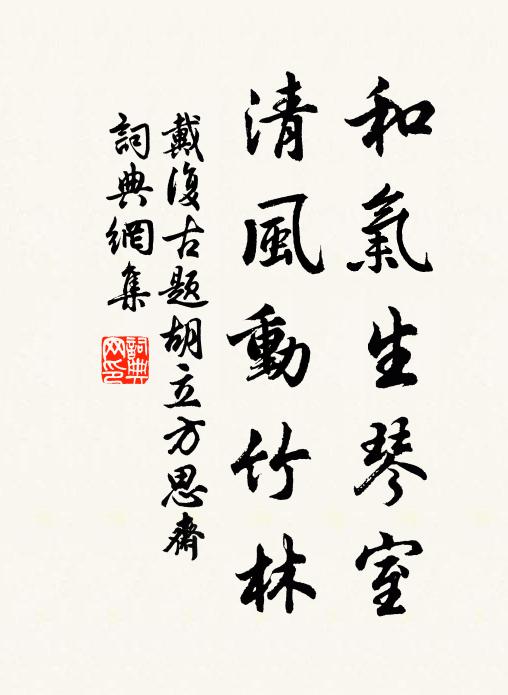 和氣生琴室
清風動竹林
戴復古題胡立方思齋
詞典網集
詞典網印